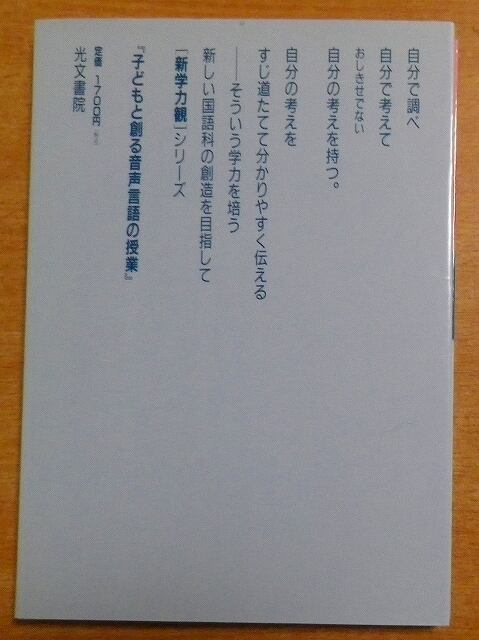 自分で調べ
自分で考えて
おしきせでない
自分の考えを持つ。
自分の考えを
すじ道たてて分かりやすく伝える
――そういう学力を培う
新しい国語科の創造を目指して
［新学力観］シリーズ
『子どもと創る音声言語の授業』
定価 1700円
光文書院